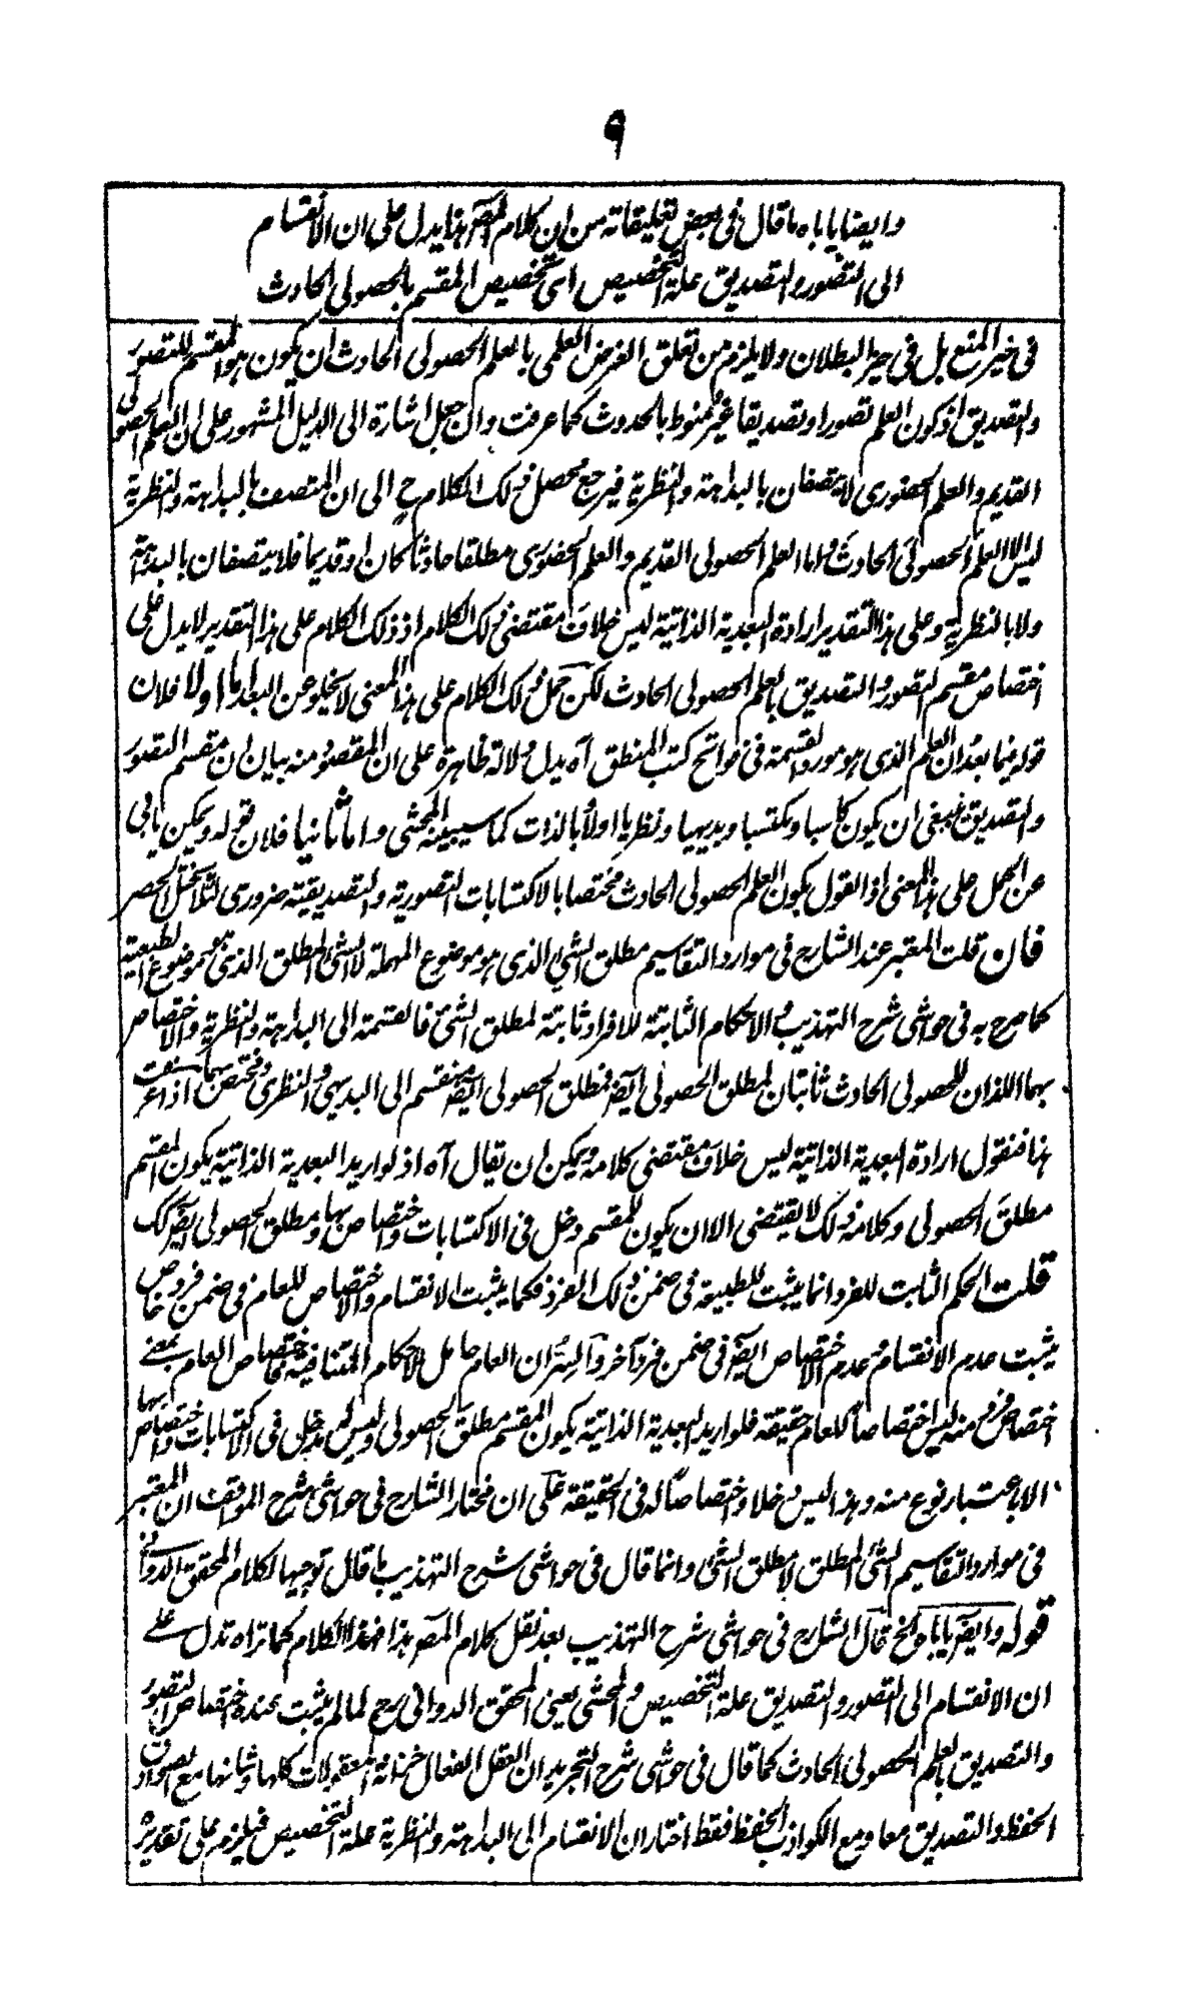 ٩
وايضا ياباه ما قال فى بعض تعليقاته من ان كلام المصر هذا يدل على ان الانقسام
الى التصور والتصديق علة التخصيص اى تخصيص المقسم بالحصولى الحادث
فى حيز المنع بل فى حيز البطلان ولا يلزم من تعلق الغرض العلمى بالعلم الحصولى الحادث ان يكون هو المقسم للتصور
والتصديق اذ كون العلم تصورا وتصديقا غير منوط بالحدوث كما عرفت وان جعل اشارة الى الدليل المشهور على ان العلم الحصولى
القديم والعلم الحضورى لا يتصفان بالبداهة والنظرية فيرجع محصل ذلك الكلام ح الى ان المتصف بالبداهة والنظرية
ليس الا العلم الحصولى الحادث واما العلم الحصولى القديم والعلم الحضورى مطلقا حادثا كان او قديما فلا يتصفان بالبداهة
ولا بالنظرية وعلى هذا التقدير ارادة البعدية الذاتية ليس خلاف مقتضى ذلك الكلام اذ ذلك الكلام على هذا التقدير لا يدل على
اختصاص مقسم التصور والتصديق بالعلم الحصولى الحادث لكن حمل ذلك الكلام على هذا المعنى لا يخلو عن البعد اما اولا فلان
قوله فيما بعد ان العلم الذى هو مورد القسمة فى فواتح كتب المنطق آه يدل دلالة ظاهرة على ان المقصود منه بيان ان مقسم التصور
والتصديق ينبغى ان يكون كاسبا ومكتسبا وبديهيا ونظريا اولا وبالذات كما سيبينه المحشى واما ثانيا فلان قوله ويمكن يابى
عن الحمل على هذا المعنى اذ القول بكون العلم الحصولى الحادث مختصا بالاكتسابات التصورية والتصديقية ضرورى لئلا يختل الحصر
فان قلت المعتبر عند الشارح فى موارد التقاسيم مطلق الشئ الذى هو موضوع المهملة لا الشئ المطلق الذى هو موضوع الطبيعية
كما صرح به فى حواشى شرح التهذيب والاحكام الثابتة للافراد ثابتة لمطلق الشئ فالقسمة الى البداهة والنظرية والاختصاص
بهما اللذان للحصولى الحادث ثابتان لمطلق الحصولى ايضر فمطلق الحصولى ايضر منقسم الى البديهى والنظرى ومختص بهما اذا عرفت
هذا فنقول ارادة البعدية الذاتية ليس خلاف مقتضى كلامه ويمكن ان يقال آه اذ لو اريد البعدية الذاتية يكون المقسم
مطلق الحصولى وكلامه ذلك لا يقتضى الا ان يكون للمقسم دخل فى الاكتسابات واختصاص بها ومطلق الحصولى ايضر كك
قلت الحكم الثابت للفرد انما يثبت للطبيعة فى ضمن ذلك الفرد فكما يثبت الانقسام والاختصاص للعام فى ضمن فرد خاص
يثبت عدم الانقسام وعدم الاختصاص ايضر فى ضمن فرد آخر والسر ان العام حامل للاحكام المتنافية فاختصاص العام بمعنى
اختصاص فرد منه ليس اختصاصا للعام حقيقة فلو اريد البعدية الذاتية يكون المقسم مطلق الحصولى وليس له دخل فى الاكتسابات واختصاص بها
الا باعتبار نوع منه وهذا ليس دخلا واختصاصا له فى الحقيقة على ان مختار الشارح فى حواشى شرح المواقف ان المعتبر
فى موارد التقاسيم الشئ المطلق لا مطلق الشئ وانما قال فى حواشى شرح التهذيب ما قال توجيها لكلام المحقق الدوانى
قوله وايضر ياباه الخ قال الشارح فى حواشى شرح التهذيب بعد نقل كلام المصر هذا فهذا الكلام كما تراه تدل على
ان الانقسام الى التصور والتصديق علة التخصيص والمحشى يعنى المحقق الدوانى رح لما لم يثبت عنده اختصاص التصور
والتصديق بالعلم الحصولى الحادث كما قال فى حواشى شرح التجريد ان العقل الفعال خزانة المعقولات كلها وشانها مع الصوادق
الحفظ والتصديق معا ومع الكواذب الحفظ فقط اختار ان الانقسام الى البداهة والنظرية علة التخصيص فيلزم على تقدير